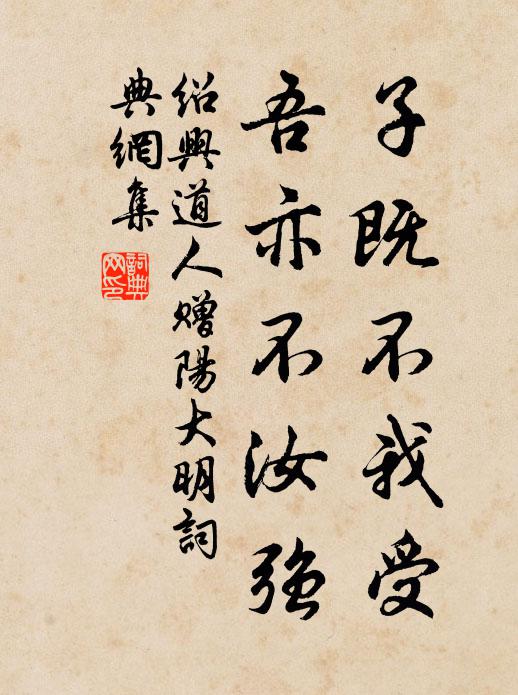 子既不我受
吾亦不汝強
紹興道人贈陽大明詞
典網集
詞典
网印